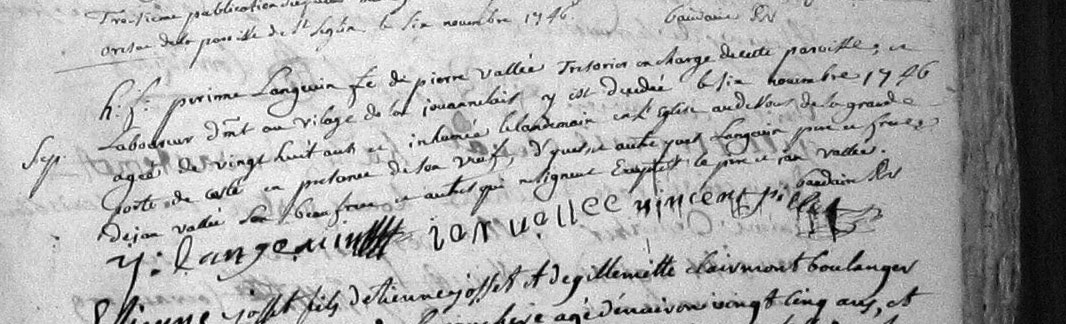 Troisieme publication
de la paroisse de St le six novembre 1746. baudaire Rr
Sep
h. f. perinne Langevin fe de pierre vallée Tresorier en charge de cette paroisse, et
Laboureur dmt au vilage de la jouannelais y est decedée le six novembre 1746
agée de vingt huit ans et inhumée le landemain en l'Eglise au dessous de la grande
porte de costé en presence de son veuf, d'yves, et autre yves Langevin pere et frere,
de jan vallée son beaufrere et autres qui ne signent Excepté le pere et jan vallée.
baudaire Rr
y: langevin jan vallee vincent pillet
Etienne josset fils detienne josset et de gillemette clairmont boulanger
agé denviron vingt cinq ans, et